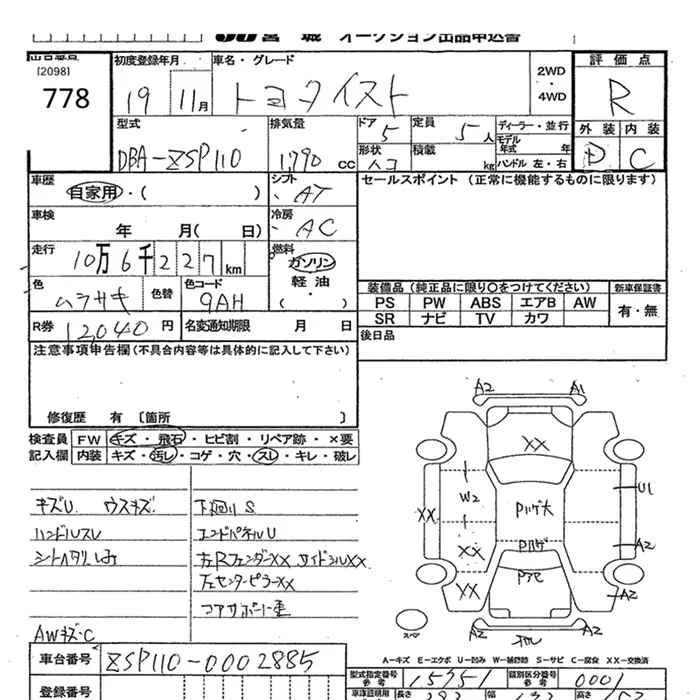 宮城 オークション出品申込書
出品番号 初度登録年月 車名・グレード 2WD・4WD 評価点
[2098]
778 19 11月 トヨタ イスト R
型式 排気量 ドア 5 定員 5人 ディーラー・並行 外装 内装
モデル年式 年
DBA-ZSP110 1,790 cc 形状 積載 kg ハンドル 左・右 D C
車歴 シフト セールスポイント (正常に機能するものに限ります)
自家用・( ) AT
車検 冷房
年 月( 日) AC
走行 燃料
10万6千227km ガソリン
軽油・
色 色替 色コード 装備品(純正品に限り○をつけてください) 新車保証書
ムラサキ 9AH PS PW ABS エアB AW 有・無
SR ナビ TV カワ
R券 12040円 名変通知期限 月 日 後日品
注意事項申告欄(不具合内容等は具体的に記入して下さい)
修復歴 有 〔箇所 〕
検査員 FW キズ・飛石・ヒビ割・リペア跡・×要
記入欄 内装 キズ・汚し・コゲ・穴・スレ・キレ・破レ
キズU ウスキズ 下廻り S
ハンドルスレ エンドパネルU
シートヘタリ しみ 左RフェンダーXX サイドシルXX
左センターピラーXX
コアサポート歪
AWキズ・C
A2 A1
XX
W2 Pハゲ大 U1
XX XX Pハゲ A2
XX Pアセ A2
スペア A2 A2
A-キズ E-エクボ U-凹み W-補修跡 S-サビ C-腐食 XX-交換済
車台番号 ZSP110-0002885
型式指定番号 参考 15951 類別区分番号 参考 0001
登録番号 車庫証明用 長さ 幅 高さ